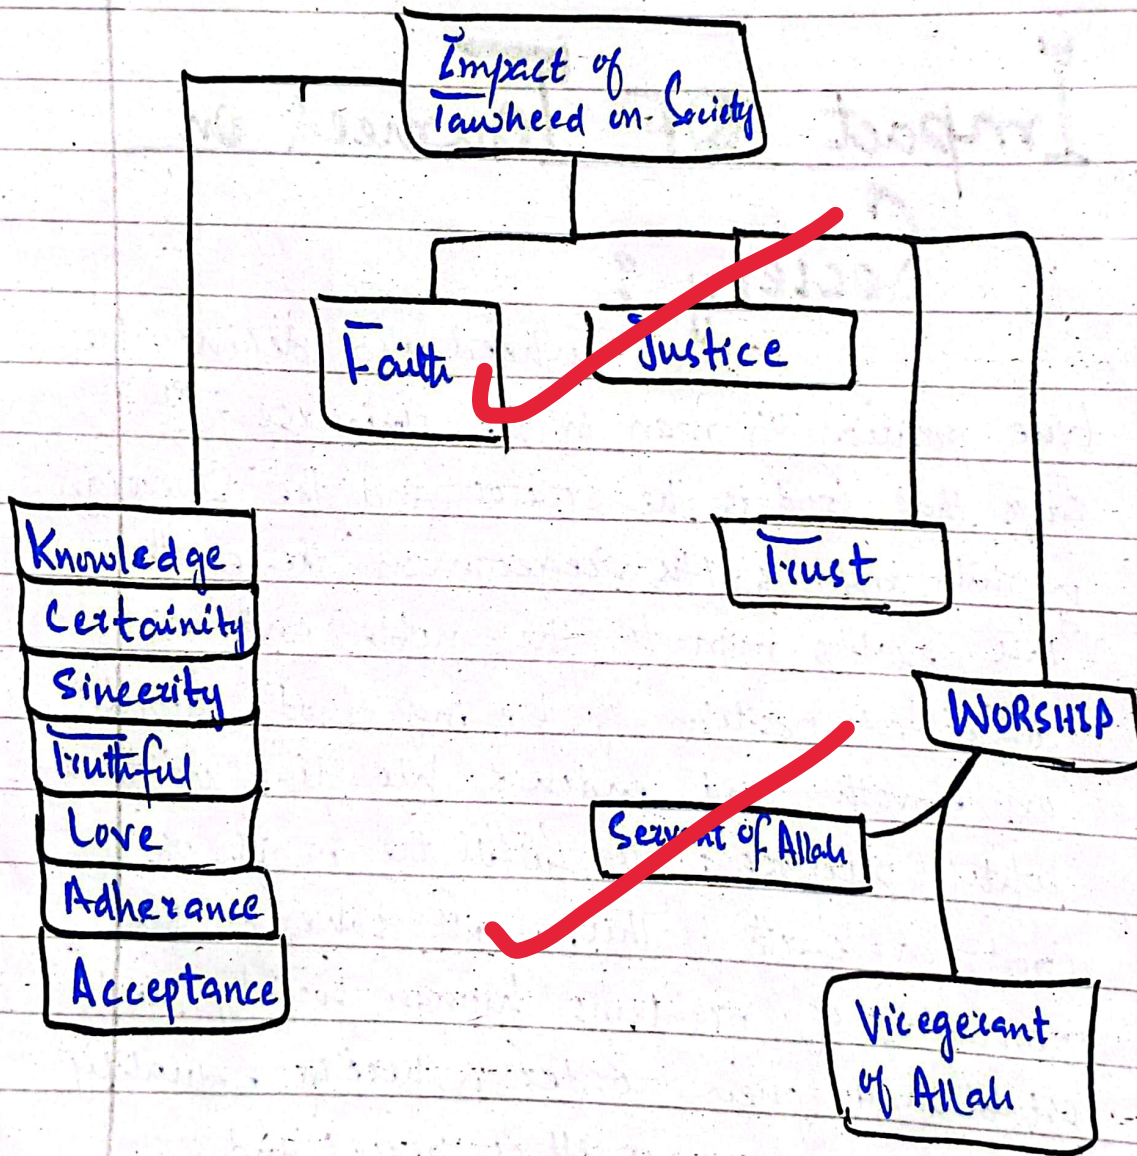 Impact of
Tawheed on Society
Faith
Justice
Trust
WORSHIP
Servant of Allah
Vicegerant
of Allah
Knowledge
Certainity
Sincerity
Truthful
Love
Adherance
Acceptance